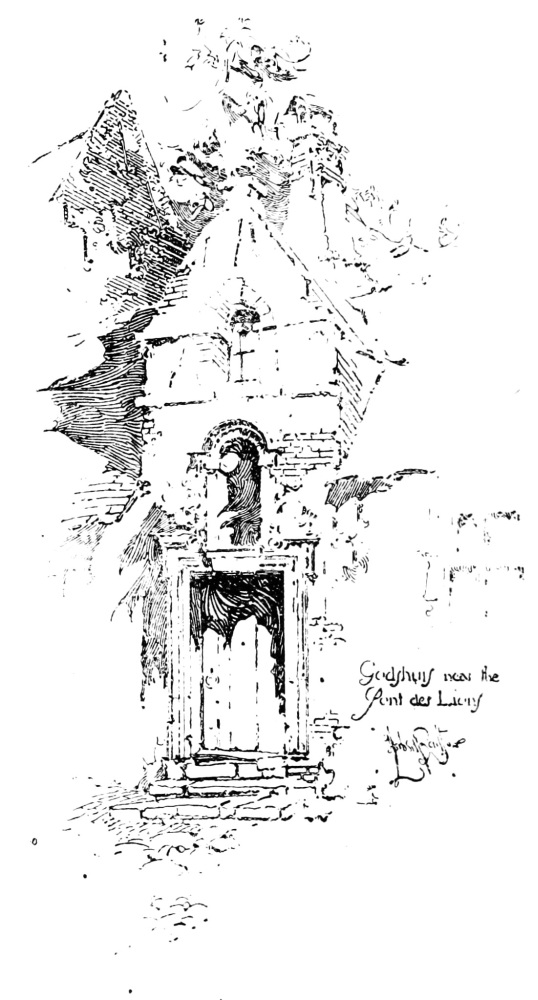 Godshuis near the
Pont des Lions